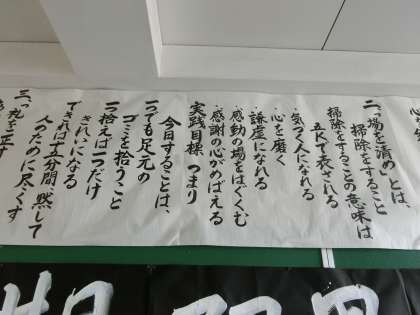 二、「場を清め」とは、
掃除をすること
掃除をすることの意味は
五Kで表される
・気づく人になれる
・心を磨く
・謙虚になれる
・感動の場をはぐくむ
・感謝の心がめばえる
実践目標 つまり
今日することは、
一つでも足元の
ゴミを拾うこと
一つ拾えば一つだけ
きれいになる
できれば十五分間、黙して
人のために尽くす
三つ、礼を正す